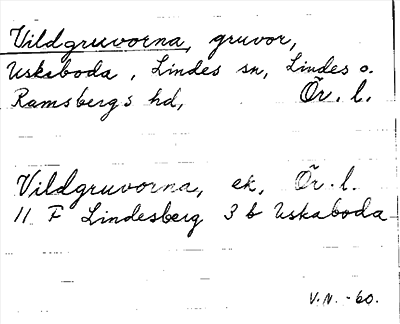 Vildgruvorna, gruvor,
Uskaboda, Lindes sn, Lindes o.
Ramsbergs hd, Ör. l.
Vildgruvorna, ek, Ör. l.
11 F Lindesberg 3 b Uskaboda
V.N. -60.